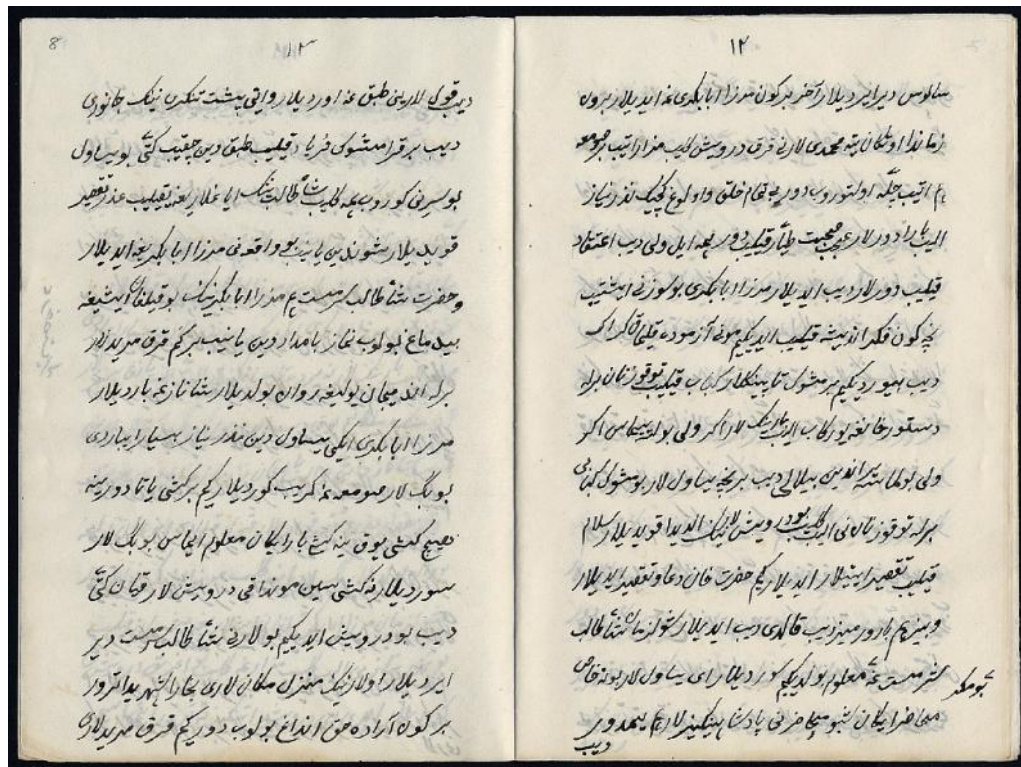 ۱۲
سالوس دیرایردیلار آخر بر کون مرزا ابابکری غه ایدیلار بزون
زماندا اوتکان یته محمدی لارنی قرق درویش کلیب مزاراتیب صومعه
هم ایتیب چله اولتوروب دور بو تمام خلق و اولوغ کیچیک نذر نیاز
الیب بارادورلار عجب صحبت طیار قیلیب دور همه ایل ولی دیب اعتقاد
قیلیب دورلار دیب ایدیلار مرزا ابابکری بو سوزنی ایشتیب
نچه کون فکر اندیشه قیلیب ایدیکیم مونی آزموده قیلماق کراک
دیب بیوردیکیم بر مشوک تاپینکلار کباب قیلیب توقوز نان برله
دستورخانغه یورکاب الیب بارینک لار اکر ولی بولسه یماس اکر
ولی بولماسه یر اندین بیلالی دیب بر نچه یساول لار بو مشوک کبابی
برله توقوز نان نی الیب کلیب بو درویش لارنینک الدیدا قویدیلار سلام
قیلیب تقصیر ایتیلار ایدیلار کیم حضرت خان دعاو تقصیر ایدیلار
و بیز هم بارورمیز دیب قالدی دیب ایدیلار شول زمان شاه طالب
سرمست غه معلوم بولدیکیم کوردیلار ای یساول لار بو نه خاص
بو مکر
محاضر ایکان شبو محاضرنی پادشاهینکیزلار هم یمدور
دیب
8
۱۳
دیب قول لارینی طبق غه اوردیلار واتی پشت تنکری نینک جانوری
دیب بر قرا مشوک فریاد قیلیب طبق دین چیقیب کتی بو یساول
بو سرنی کوروب همه کلیب شاه طالب نینک ایاغلاریغه ییقیلیب عذر تقصیر
قویدیلار شوندین یانیب بو واقعه نی مرزا ابابکریغه ایدیلار
و حضرت شاه طالب سرمست هم مرزا ابابکرنینک بو قیلغان ایشیغه
بیدماغ بولوب نماز بامداددین یانیب بر کم قرق مریدلار
برله اندیجان یولیغه روان بولدیلار شاه نازغه باردیلار
مرزا ابابکری ایکی یساول دین نذر نیاز بسیار ایباردی
بو بک لار صومعه غه کریب کوردیلار کیم بر کشی یاتادور ینه
هیچ کشی یوق ینه کشی بار ایکان معلوم ایماس بو بک لار
سوردیلار نه کشی سین مونداقی درویش لار قیان کتی
دیب بو درویش ایدیکیم بولارنی شاه طالب سرمست دیر
ایردیلار اولارنینک منزل مکان لاری بخارا شهریدا ترور
بر کون اراده حق انداغ بولوب دورکیم قرق مریدلاری